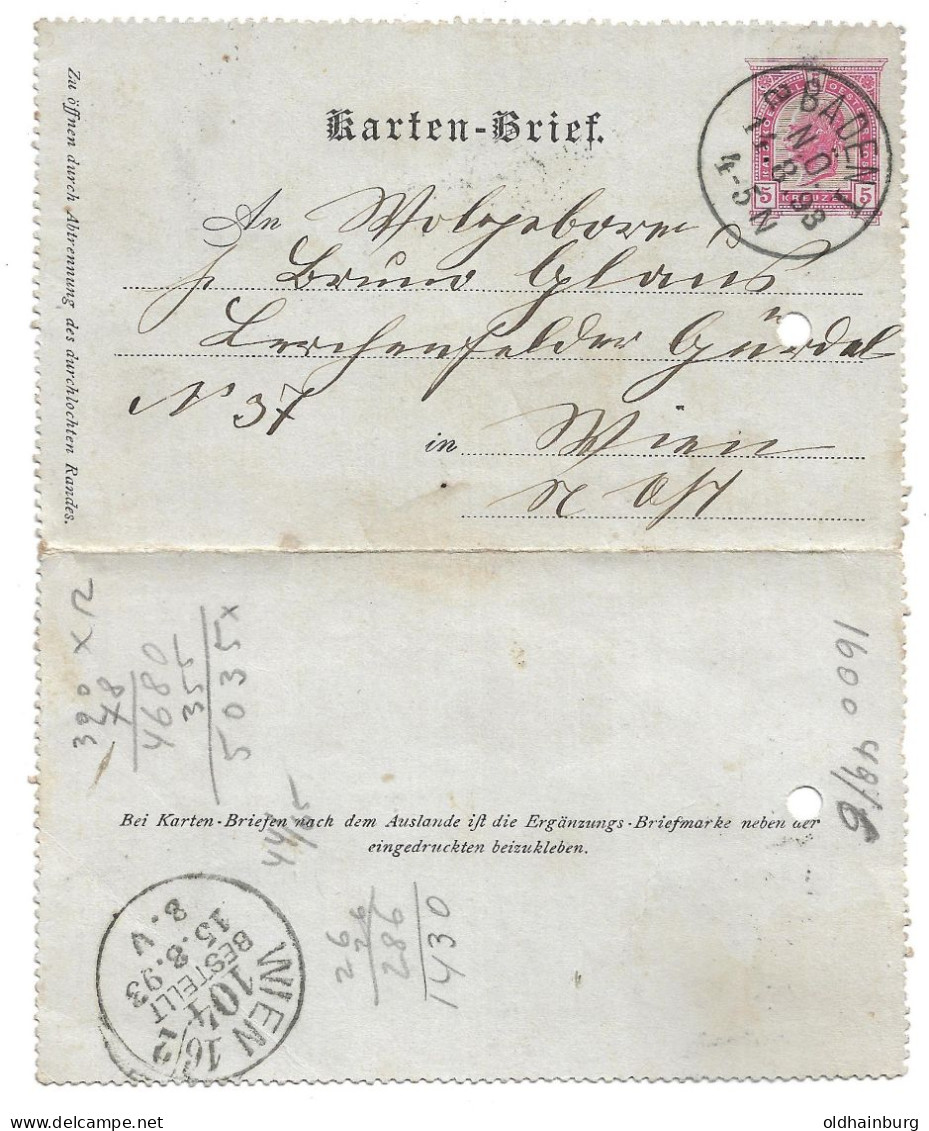 Karten-Brief.
Zu öffnen durch Abtrennung des durchlochten Randes.
5 KREUZER 5
BADEN
N.Ö.
8.93
4-5 N
An Wolgeboren
Bruno Glaus
Lerchenfelder Gürdel
No 37
in Wien
390 x 12
78
4680
355
5035 x
1600
48/6
Bei Karten-Briefen nach dem Auslande ist die Ergänzungs-Briefmarke neben der
eingedruckten beizukleben.
44/5
26
286
1430
WIEN 16/2
104
BESTELLT
15.8.93
8.V
oldhainburg